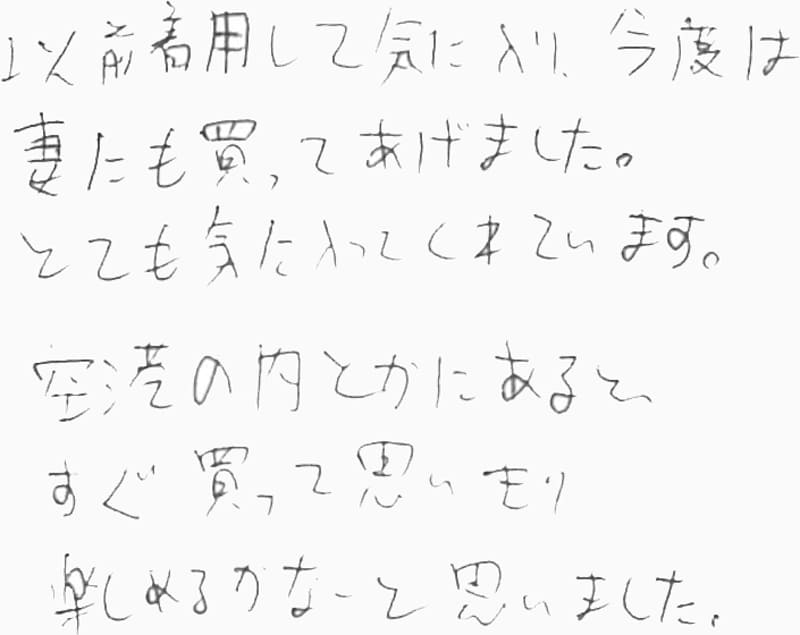 以前着用して気に入り、今度は
妻にも買ってあげました。
とても気に入ってくれています。
空港の内とかにあると、
すぐ買って思いモリ
楽しめるかなーと思いました、